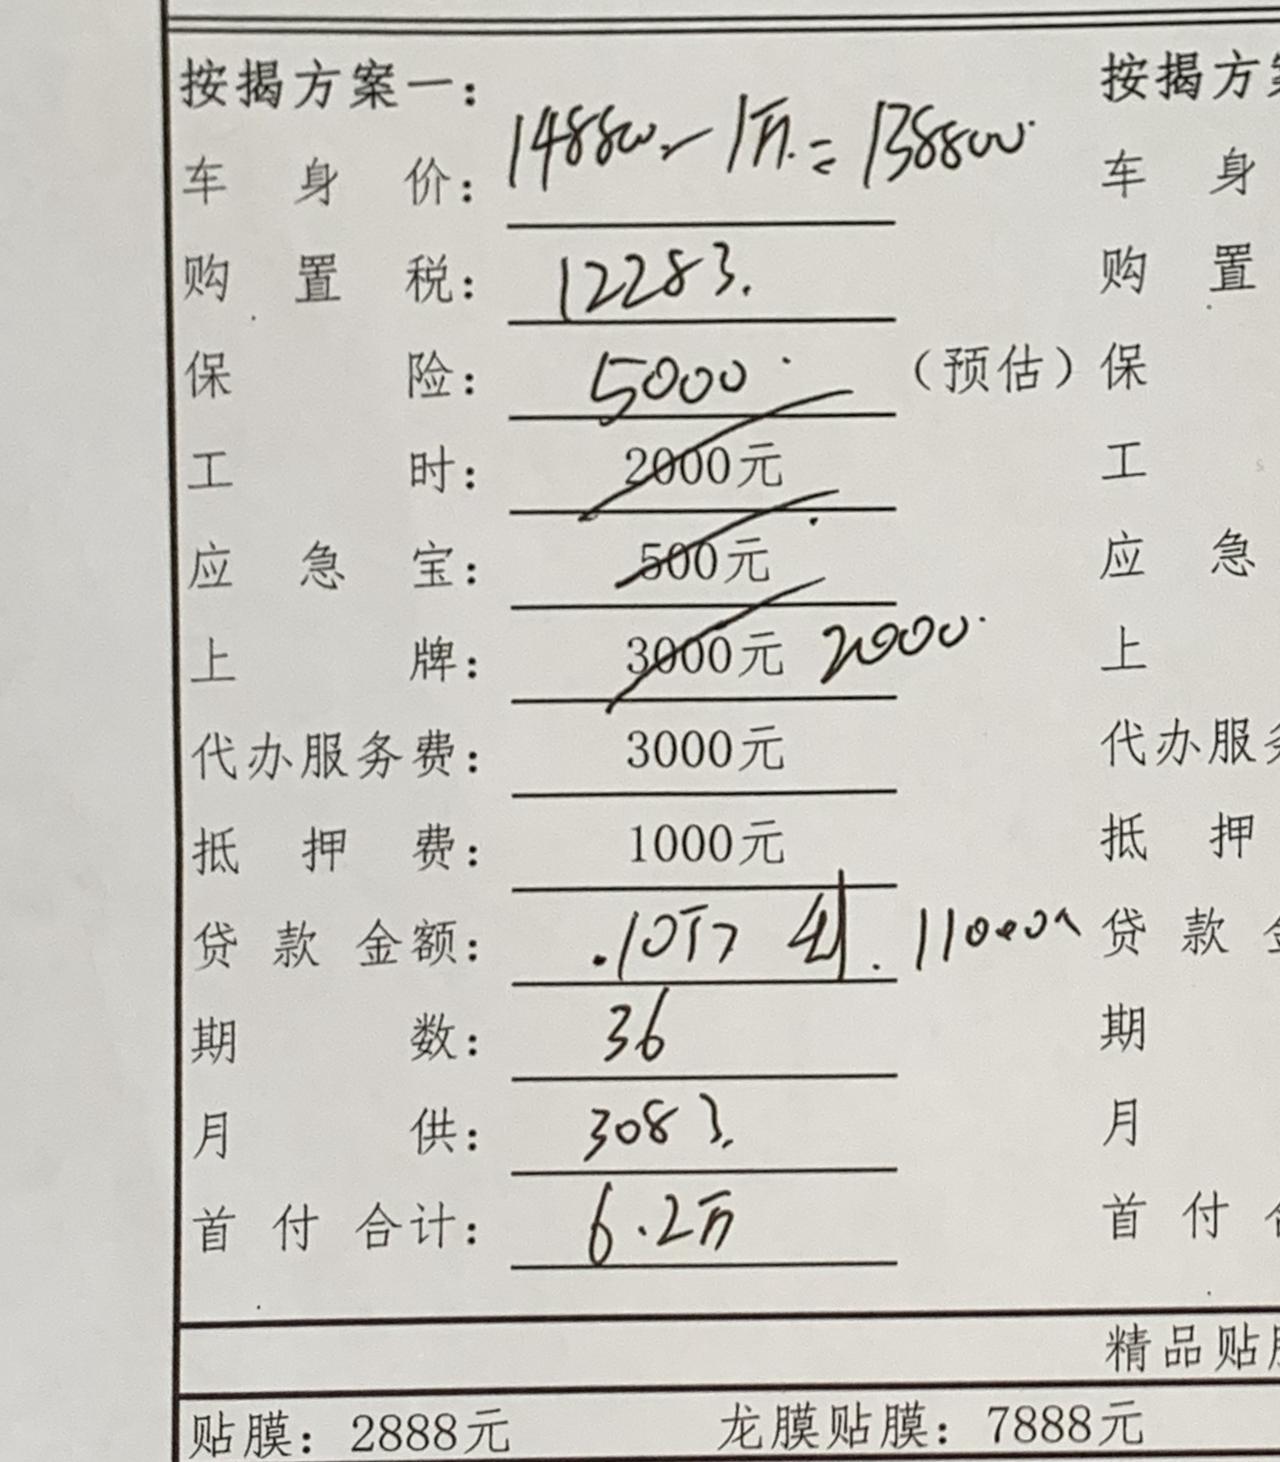 按揭方案一： 按揭方
车身价：148800-1万=138800 车身
购置税：12283. 购置
保险：5000 （预估）保
工时：2000元 工
应急宝：500元 应急
上牌：3000元 2000 上
代办服务费：3000元 代办服
抵押费：1000元 抵押
贷款金额：10万 11000 贷款
期数：36 期
月供：3083. 月
首付合计：6.2万 首付
精品贴
贴膜：2888元 龙膜贴膜：7888元